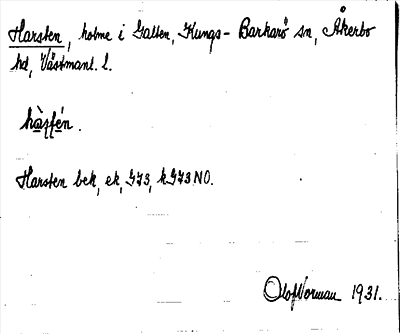 Harsten, holme i Galten, Kungs-Barkarö sn, Åkerbo
hd, Västmanl. l.
Harsten bek, ek, G73, k G73 NO.
Olof Norman 1931.